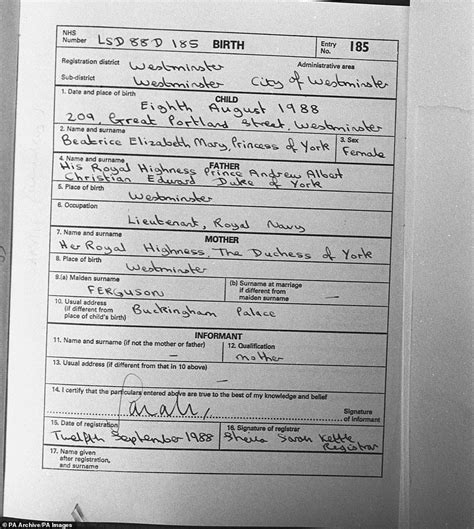 NHS Number LSD 88D 185 BIRTH Entry No. 185
Registration district Westminster Administrative area
Sub-district Westminster City of Westminster
1. Date and place of birth CHILD
Eighth August 1988
209, Great Portland Street, Westminster
2. Name and surname 3. Sex
Beatrice Elizabeth Mary, Princess of York Female
4. Name and surname FATHER
His Royal Highness Prince Andrew Albert
Christian Edward Duke of York
5. Place of birth
Westminster
6. Occupation
Lieutenant, Royal Navy
7. Name and surname MOTHER
Her Royal Highness, The Duchess of York
8. Place of birth
Westminster
9.(a) Maiden surname (b) Surname at marriage if different from maiden surname
FERGUSON
10. Usual address (if different from place of child's birth) Buckingham Palace
INFORMANT
11. Name and surname (if not the mother or father) 12. Qualification
mother
13. Usual address (if different from that in 10 above)
14. I certify that the particulars entered above are true to the best of my knowledge and belief
Sarah, Signature of informant
15. Date of registration 16. Signature of registrar
Twelfth September 1988 Sheila Sarah Kettle
Registrar
17. Name given after registration, and surname
© PA Archive/PA Images